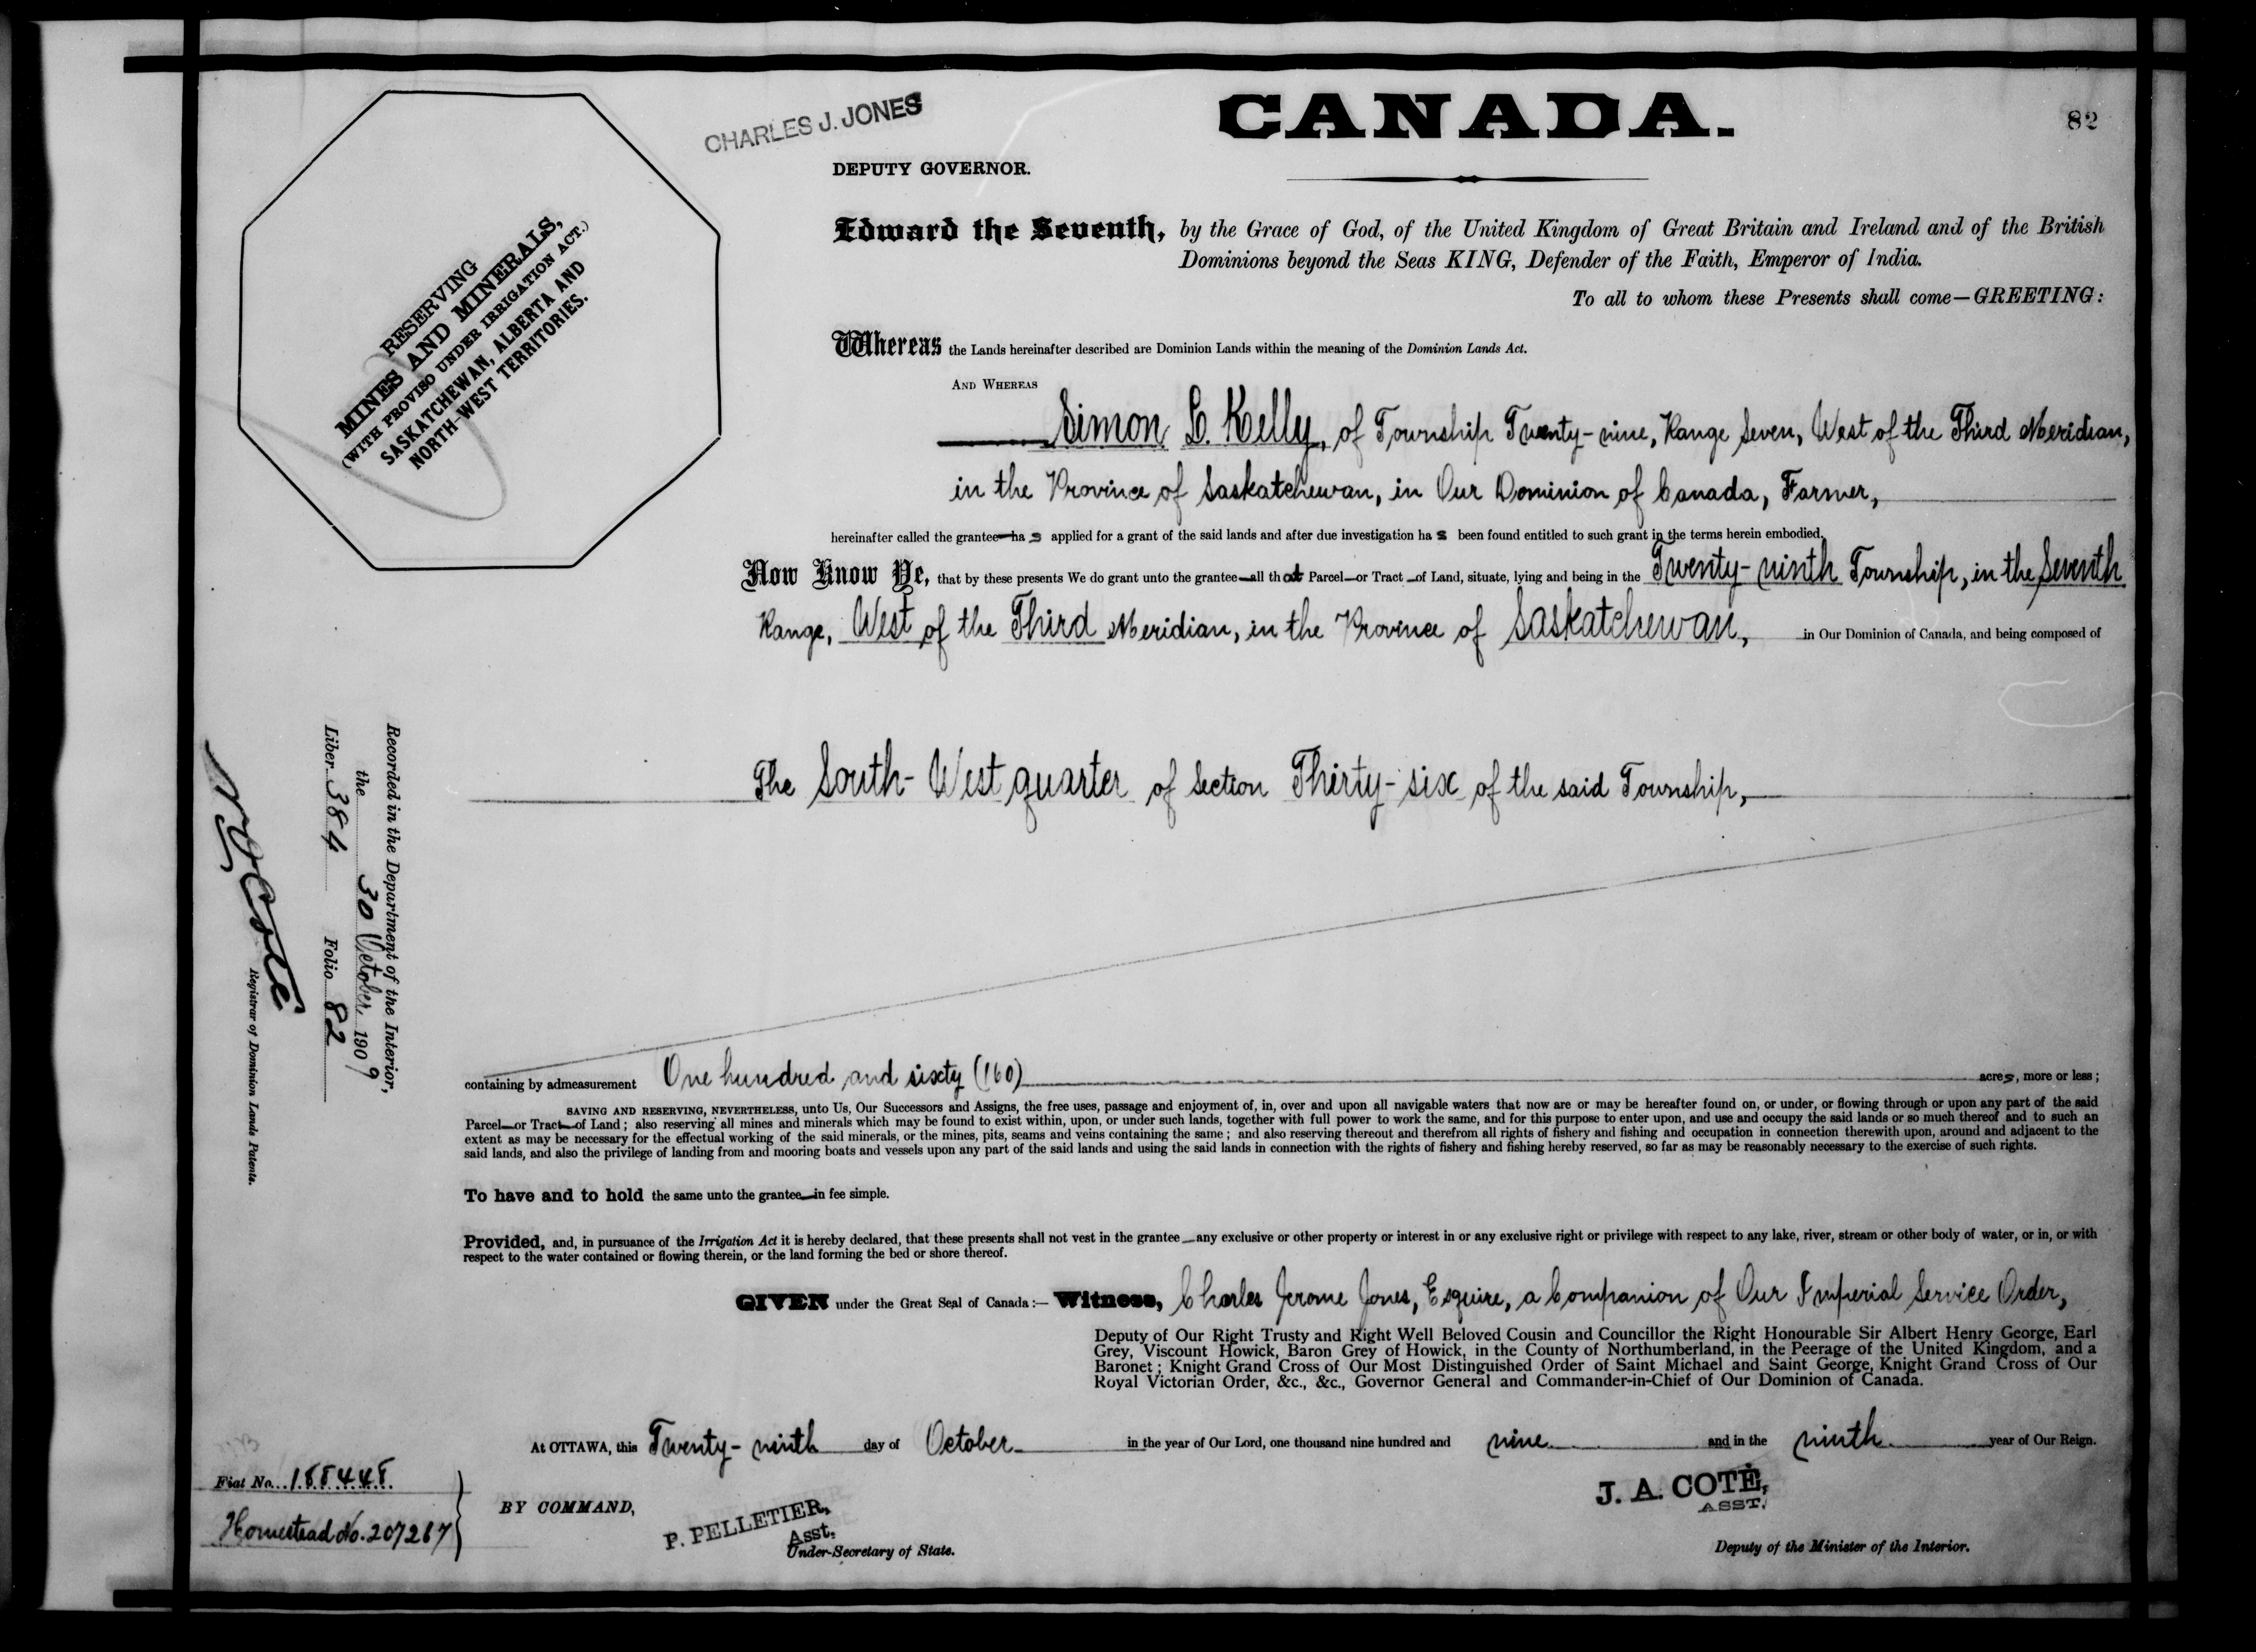 CANADA.
82
CHARLES J. JONES
DEPUTY GOVERNOR.
RESERVING
MINES AND MINERALS,
(WITH PROVISO UNDER IRRIGATION ACT.)
SASKATCHEWAN, ALBERTA AND
NORTH-WEST TERRITORIES.
Edward the Seventh, by the Grace of God, of the United Kingdom of Great Britain and Ireland and of the British
Dominions beyond the Seas KING, Defender of the Faith, Emperor of India.
To all to whom these Presents shall come—GREETING:
Whereas the Lands hereinafter described are Dominion Lands within the meaning of the Dominion Lands Act.
AND WHEREAS
Simon L. Kelly, of Township Twenty-nine, Range Seven, West of the Third Meridian,
in the Province of Saskatchewan, in Our Dominion of Canada, Farmer,
hereinafter called the grantee—ha s applied for a grant of the said lands and after due investigation ha s been found entitled to such grant in the terms herein embodied.
Now Know Ye, that by these presents We do grant unto the grantee—all that Parcel—or Tract—of Land, situate, lying and being in the Twenty-ninth Township, in the Seventh
Range, West of the Third Meridian, in the Province of Saskatchewan, in Our Dominion of Canada, and being composed of
The South-West quarter of Section Thirty-six of the said Township,
Recorded in the Department of the Interior,
the 30 October, 1909
Liber 384 Folio 82
N O Coté
Registrar of Dominion Lands Patents.
containing by admeasurement One hundred and sixty (160) acres, more or less;
SAVING AND RESERVING, NEVERTHELESS, unto Us, Our Successors and Assigns, the free uses, passage and enjoyment of, in, over and upon all navigable waters that now are or may be hereafter found on, or under, or flowing through or upon any part of the said
Parcel—or Tract—of Land; also reserving all mines and minerals which may be found to exist within, upon, or under such lands, together with full power to work the same, and for this purpose to enter upon, and use and occupy the said lands or so much thereof and to such an
extent as may be necessary for the effectual working of the said minerals, or the mines, pits, seams and veins containing the same; and also reserving thereout and therefrom all rights of fishery and fishing and occupation in connection therewith upon, around and adjacent to the
said lands, and also the privilege of landing from and mooring boats and vessels upon any part of the said lands and using the said lands in connection with the rights of fishery and fishing hereby reserved, so far as may be reasonably necessary to the exercise of such rights.
To have and to hold the same unto the grantee—in fee simple.
Provided, and, in pursuance of the Irrigation Act it is hereby declared, that these presents shall not vest in the grantee—any exclusive or other property or interest in or any exclusive right or privilege with respect to any lake, river, stream or other body of water, or in, or with
respect to the water contained or flowing therein, or the land forming the bed or shore thereof.
GIVEN under the Great Seal of Canada:— Witness, Charles Jerome Jones, Esquire, a Companion of Our Imperial Service Order,
Deputy of Our Right Trusty and Right Well Beloved Cousin and Councillor the Right Honourable Sir Albert Henry George, Earl
Grey, Viscount Howick, Baron Grey of Howick, in the County of Northumberland, in the Peerage of the United Kingdom, and a
Baronet; Knight Grand Cross of Our Most Distinguished Order of Saint Michael and Saint George, Knight Grand Cross of Our
Royal Victorian Order, &c., &c., Governor General and Commander-in-Chief of Our Dominion of Canada.
At OTTAWA, this Twenty-ninth day of October in the year of Our Lord, one thousand nine hundred and nine and in the ninth year of Our Reign.
Fiat No. 188448
Homestead No. 207267
BY COMMAND,
P. PELLETIER,
Asst.
Under-Secretary of State.
J. A. COTÉ,
ASST.
Deputy of the Minister of the Interior.